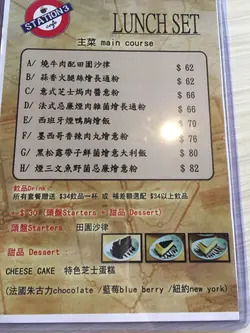 STATION3
cafe
LUNCH SET
主菜 main course
A/ 燒牛肉配田園沙律 $ 62
B/ 蒜香火腿絲繪長通粉 $ 62
C/ 意式芝士焗肉醬意粉 $ 66
D/ 法式忌廉煙肉雜菌繪長通粉 $ 66
E/ 西班牙煙鴨胸燴飯 $ 70
F/ 墨西哥香辣肉丸燴意粉 $ 76
G/ 黑松露帶子鮮菌燴意大利飯 $ 80
H/ 煙三文魚野菌忌廉燴意粉 $ 82
飲品Drink :
所有套餐贈送 $34飲品一杯 或 補差額選配 $34以上飲品
+ $ 30 (頭盤Starters + 甜品 Dessert)
頭盤Starters : 田園沙律
甜品 Dessert :
CHEESE CAKE 特色芝士蛋糕
(法國朱古力chocolate /藍莓blue berry /紐約new york)